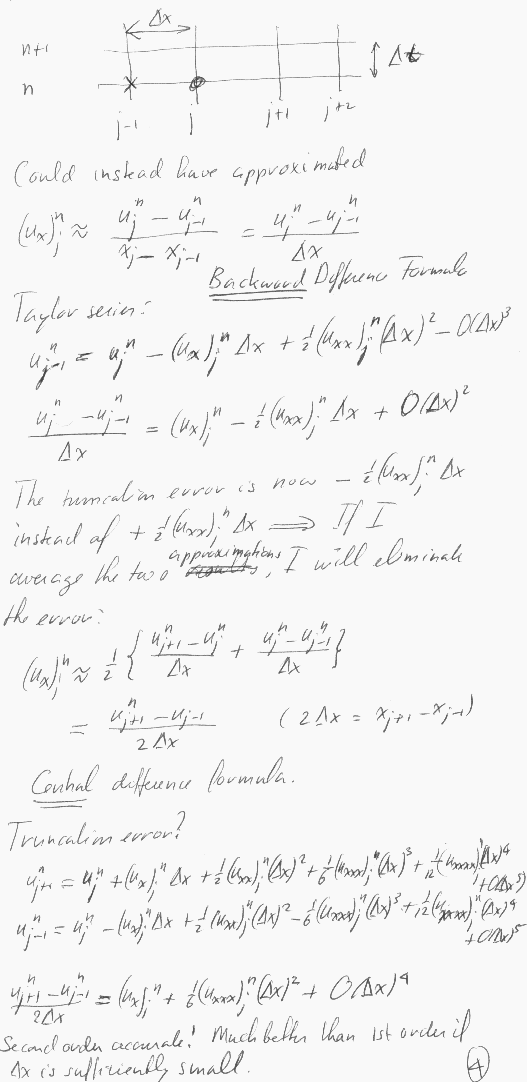 Δx
n+1
Δt
n
j-1 j j+1 j+2
Could instead have approximated
(u_x)_j^n ≈ (u_j^n - u_{j-1}^n)/(x_j - x_{j-1}) = (u_j^n - u_{j-1}^n)/Δx
Backward Difference Formula
Taylor series:
u_{j-1}^n = u_j^n - (u_x)_j^n Δx + ½(u_xx)_j^n (Δx)^2 - O(Δx)^3
(u_j^n - u_{j-1}^n)/Δx = (u_x)_j^n - ½(u_xx)_j^n Δx + O(Δx)^2
The truncation error is now - ½(u_xx)_j^n Δx
instead of + ½(u_xx)_j^n Δx ⟹ If I
average the two approximations, I will eliminate
the error:
(u_x)_j^n ≈ ½ { (u_{j+1}^n - u_j^n)/Δx + (u_j^n - u_{j-1}^n)/Δx }
= (u_{j+1}^n - u_{j-1})/2Δx (2Δx = x_{j+1} - x_{j-1})
Central difference formula.
Truncation error?
u_{j+1}^n = u_j^n + (u_x)_j^n Δx + ½(u_xx)_j^n (Δx)^2 + 1/6(u_xxx)_j^n (Δx)^3 + 1/12(u_xxxx)_j^n (Δx)^4
+ O(Δx)^5
u_{j-1}^n = u_j^n - (u_x)_j^n Δx + ½(u_xx)_j^n (Δx)^2 - 1/6(u_xxx)_j^n (Δx)^3 + 1/12(u_xxxx)_j^n (Δx)^4
+ O(Δx)^5
(u_{j+1}^n - u_{j-1}^n)/2Δx = (u_x)_j^n + 1/6(u_xxx)_j^n (Δx)^2 + O(Δx)^4
Second order accurate! Much better than 1st order if
Δx is sufficiently small.
4